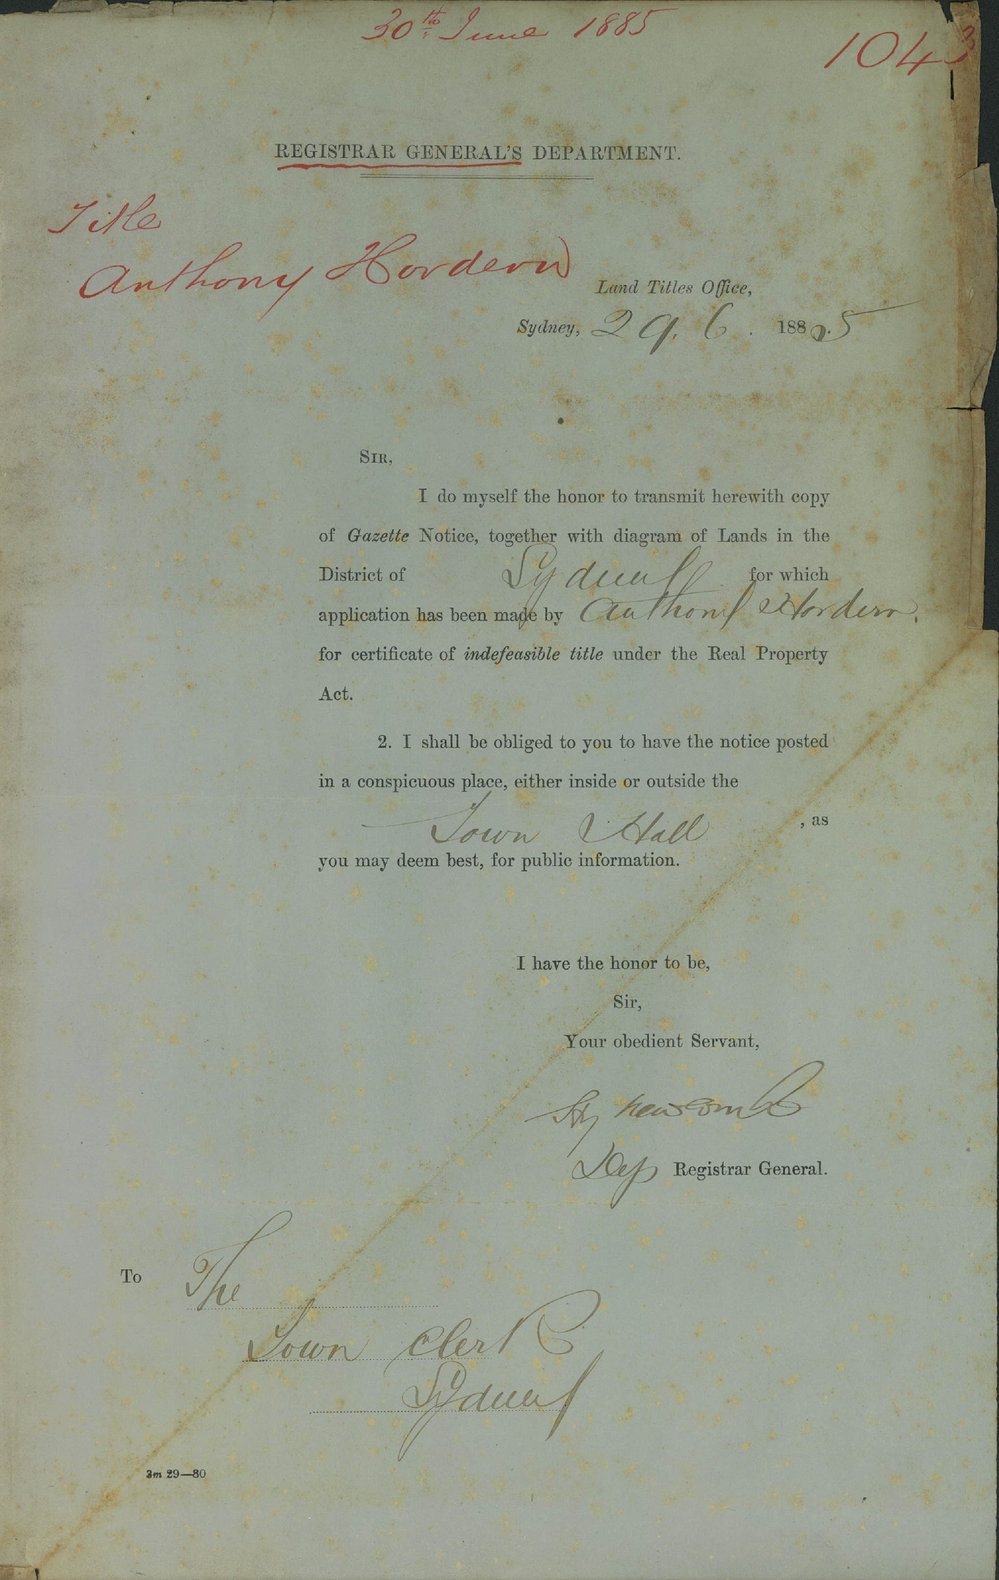 30th June 1885
1043
REGISTRAR GENERAL'S DEPARTMENT.
Title
Anthony Hordern
Land Titles Office,
Sydney, 29. 6. 1885
SIR,
I do myself the honor to transmit herewith copy
of Gazette Notice, together with diagram of Lands in the
District of Sydney for which
application has been made by Anthony Hordern.
for certificate of indefeasible title under the Real Property
Act.
2. I shall be obliged to you to have the notice posted
in a conspicuous place, either inside or outside the
Town Hall, as
you may deem best, for public information.
I have the honor to be,
Sir,
Your obedient Servant,
Newcomb
Dep Registrar General.
To The
Town Clerk
Sydney
3m 29—80